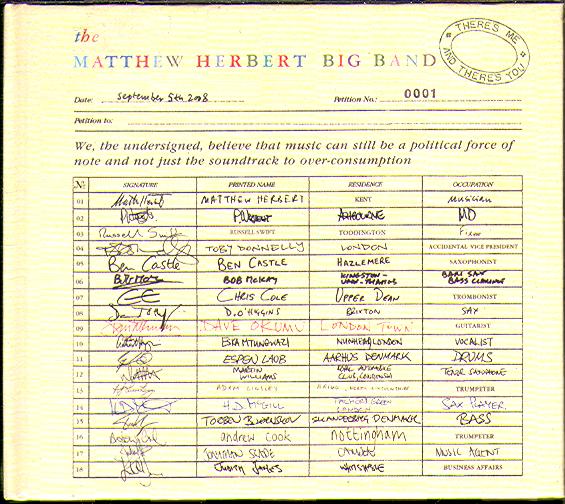 the
MATTHEW HERBERT BIG BAND
THERE'S ME AND THERE'S YOU
Date: September 5th 2008 Petition No.: 0001
Petition to:
We, the undersigned, believe that music can still be a political force of
note and not just the soundtrack to over-consumption
No. SIGNATURE PRINTED NAME RESIDENCE OCCUPATION
01 MATTHEW HERBERT KENT MUSICIAN
02 P. Wright ASHBOURNE MD
03 Russell Swift RUSSELL SWIFT TODDINGTON
04 TOBY DONNELLY LONDON ACCIDENTAL VICE PRESIDENT
05 Ben Castle BEN CASTLE HAZLEMERE SAXOPHONIST
06 BOB McKAY KINGSTON-UPON-THAMES BARI SAX BASS CLARINET
07 CHRIS COLE UPPER DEAN TROMBONIST
08 D. O'HIGGINS BRIXTON SAX
09 DAVE OKUMU LONDON TOWN GUITARIST
10 ESKA MTUNGWAZI NUNHEAD, LONDON VOCALIST
11 ESPEN LAUB AARHUS DENMARK DRUMS
12 MARTIN WILLIAMS TENOR SAXOPHONE
13 TRUMPETER
14 LONDON SAX PLAYER
15 TORBEN BJØRNSKOV SKANDERBORG DENMARK BASS
16 andrew cook nottingham TRUMPETER
17 JONATHAN SLADE MUSIC AGENT
18 Judith James WHITSTABLE BUSINESS AFFAIRS